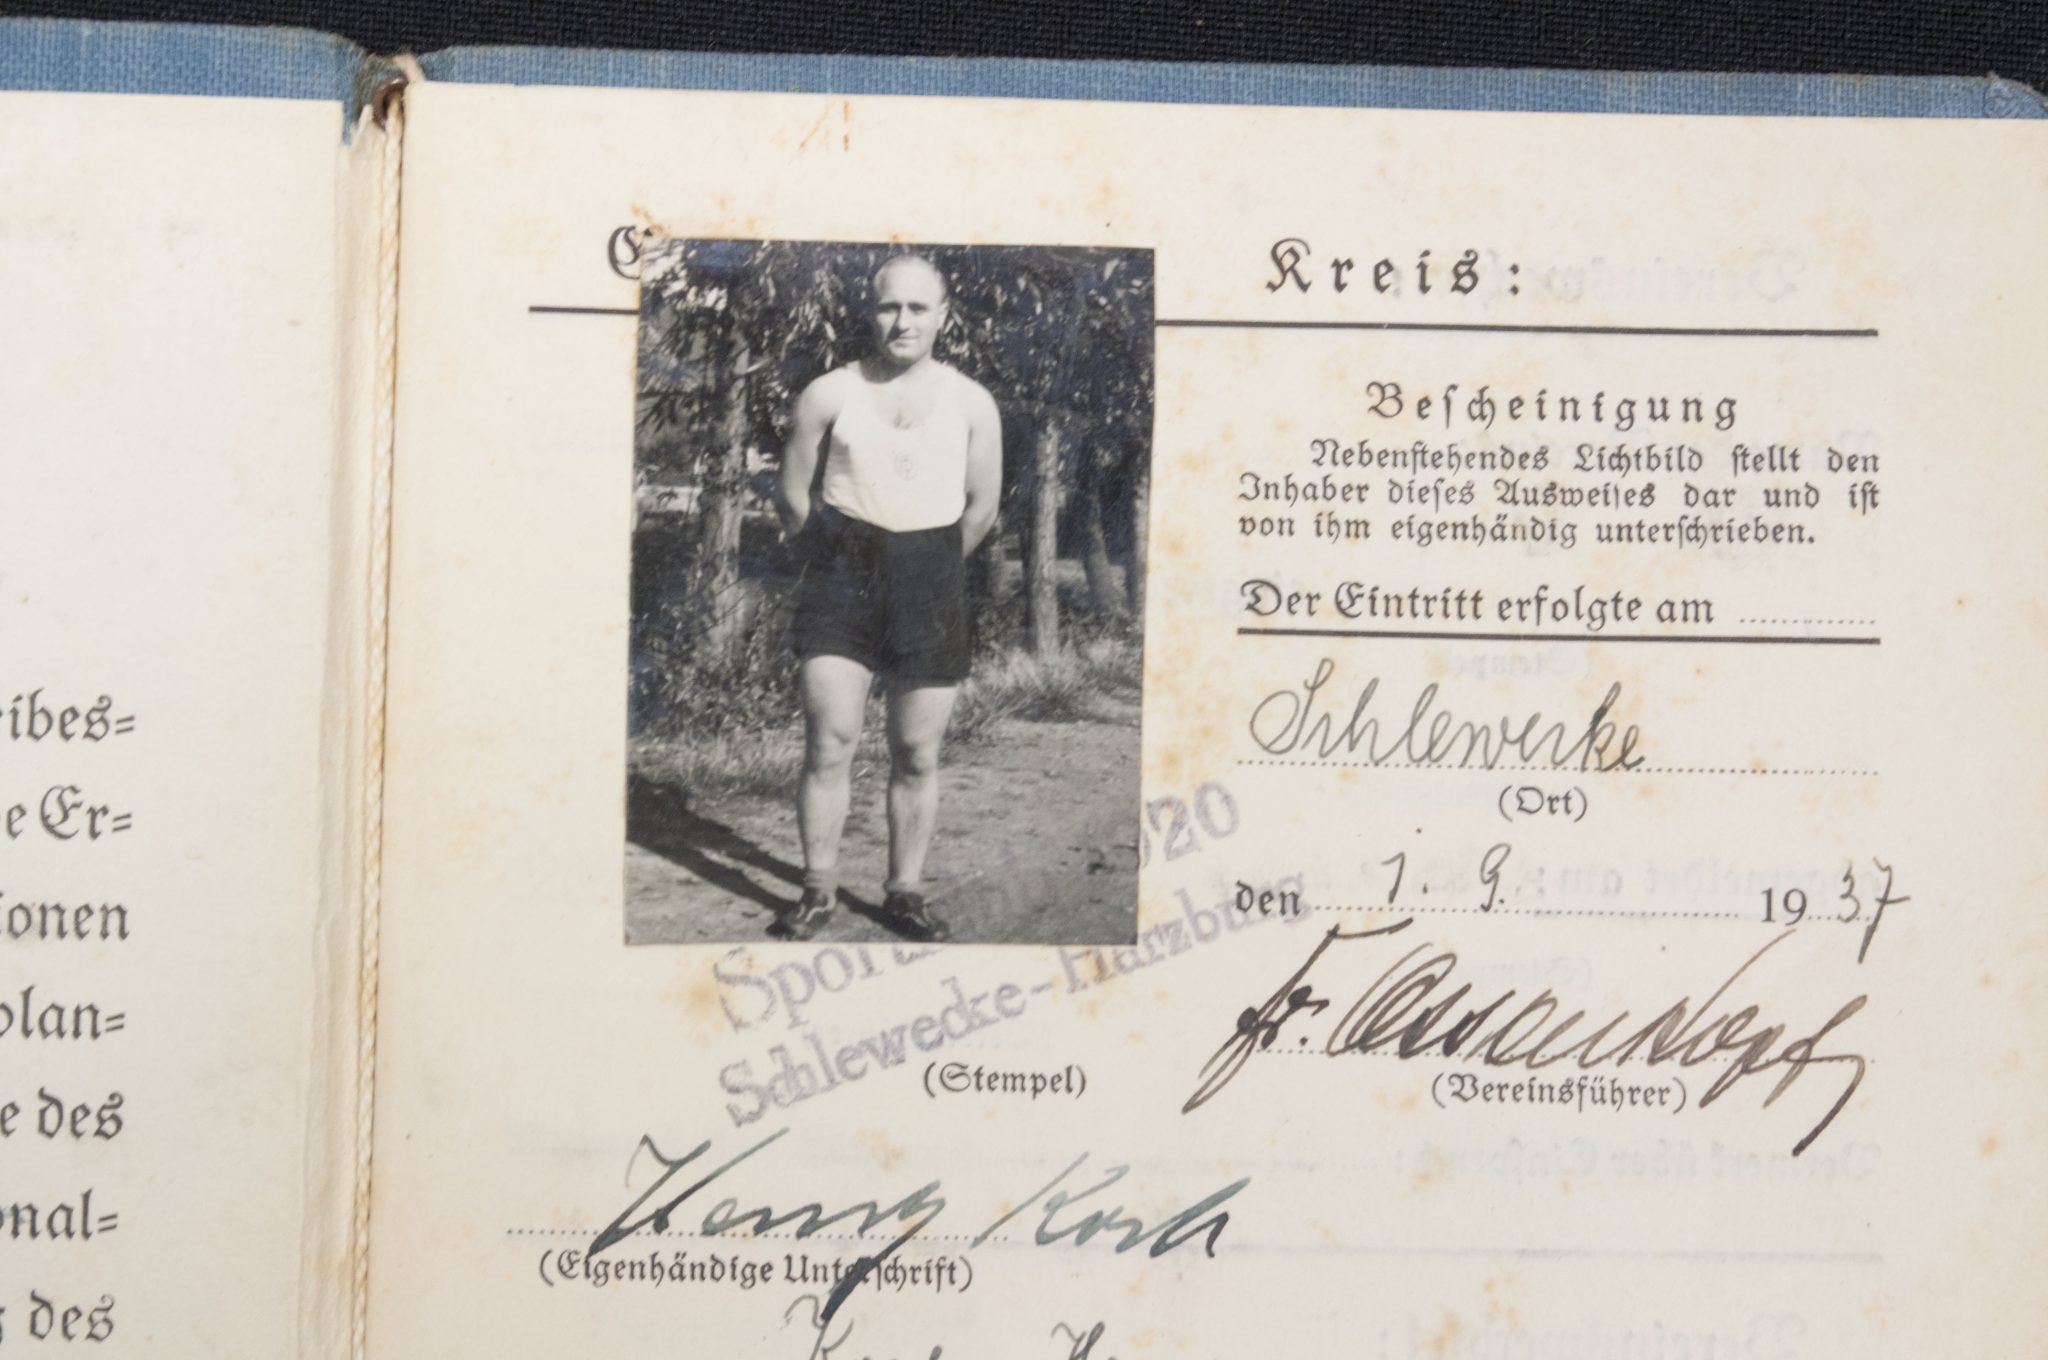 eibes=
e Er=
ionen
plan=
e des
onal=
des
Kreis:
Bescheinigung
Nebenstehendes Lichtbild stellt den
Inhaber dieses Ausweises dar und ist
von ihm eigenhändig unterschrieben.
Der Eintritt erfolgte am
Schlewecke
(Ort)
den 1. 9. 1937
20
Schlewecke-Harzburg
(Stempel)
Fr.
(Vereinsführer)
Henry Koch
(Eigenhändige Unterschrift)